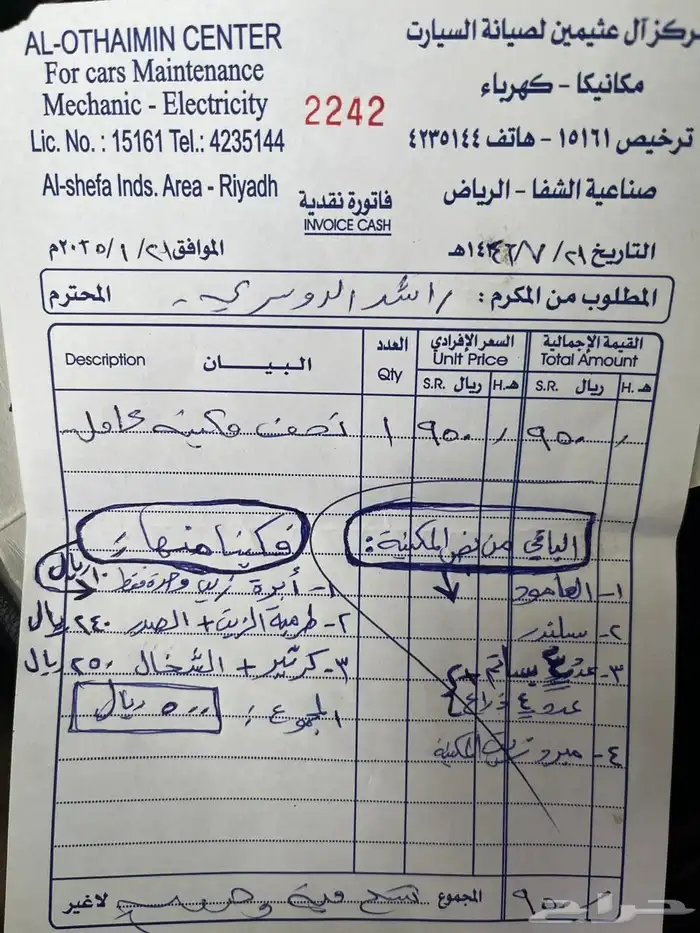 AL-OTHAIMIN CENTER
For cars Maintenance
Mechanic - Electricity
Lic. No. : 15161 Tel.: 4235144
Al-shefa Inds. Area - Riyadh
2242
فاتورة نقدية
INVOICE CASH
ركز آل عثيمين لصيانة السيارت
مكانيكا - كهرباء
ترخيص ١٥١٦١ - هاتف ٤٢٣٥١٤٤
صناعية الشفا - الرياض
التاريخ ٢١/ ٧/ ١٤٤٦هـ الموافق ٢١/ ١/ ٢٠٢٥م
المطلوب من المكرم : راشد الدوسري المحترم
القيمة الإجمالية السعر الإفرادي العدد البيان
Total Amount Unit Price Qty Description
هـ. H. ريال S.R. هـ. H. ريال S.R.
٩٥٠ ٩٥٠ ١ نصف مكينة كامل
الباقي من نص المكينة :
١- العامود
٢- سلندر
٣- عدد ٤ بساتم
عدد ٤ ذراع
٤- مبرد زيت المكينة
فكينا منها :
١- أبرة زيت وحدة فقط ١٠ ريال
٢- طرمبة الزيت + الصدر ٢٤٠ ريال
٣- كرتير + الشخال ٢٥٠ ريال
المجموع : ٥٠٠ ريال
٩٥٠ المجموع تسع مية وخمسين لاغير
حراج